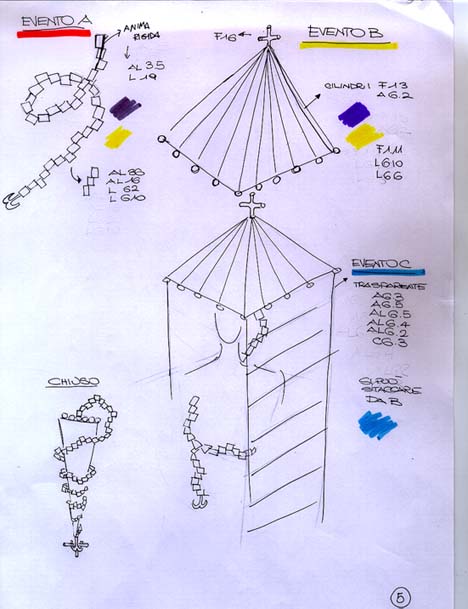 EVENTO A
ANIMA
RIGIDA
AL 3.5
L 19
AL 86
AL 16
L 62
L G10
F16
EVENTO B
CILINDRI F 13
AG.2
F11
LG10
LG6
EVENTO C
TRASPARENTE
AG.3
AG.5
ALG.5
ALG.4
ALG.2
CG.3
STACCARE
DA B
CHIUSO
5